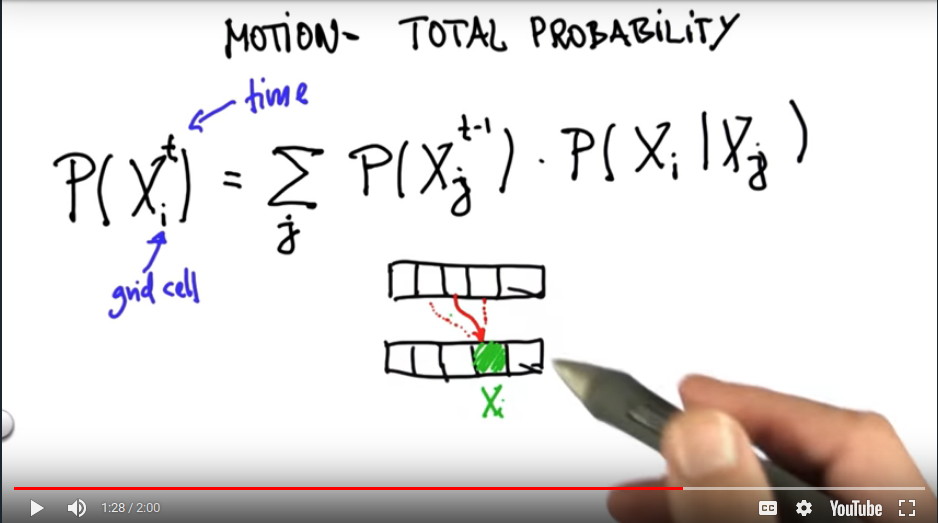 MOTION - TOTAL PROBABILITY
time
P(X_i^t) = Σ_j P(X_j^{t-1}) · P(X_i | X_j)
grid cell
X_i
1:28 / 2:00
CC
YouTube